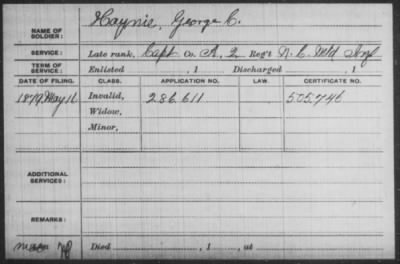 NAME OF SOLDIER: Haynie, George C.
SERVICE: Late rank, Capt Co. A, 2 Reg't N. C. Mtd Inf
TERM OF SERVICE: Enlisted , 1 Discharged , 1
DATE OF FILING. CLASS. APPLICATION NO. LAW. CERTIFICATE NO.
1879 May 16 Invalid, 286.611 505.746
Widow,
Minor,
ADDITIONAL SERVICES:
REMARKS:
Died , 1 , at